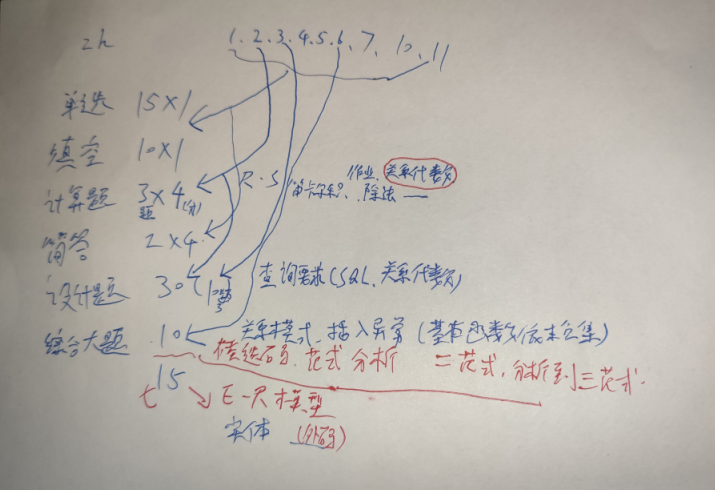 2h 1.2.3.4.5.6、7、10、11
单选 15×1
填空 10×1
作业、关系代数
计算题 3题×4(分) R·S 笛卡尔积、除法 —
简答 2×4
设计题 30 查询要求(SQL、关系代数)
综合大题 10 关系模式、插入异常(基有函数依赖集)
候选码、范式分析 二范式,分析到三范式.
15 E-R模型
实体 (外码)